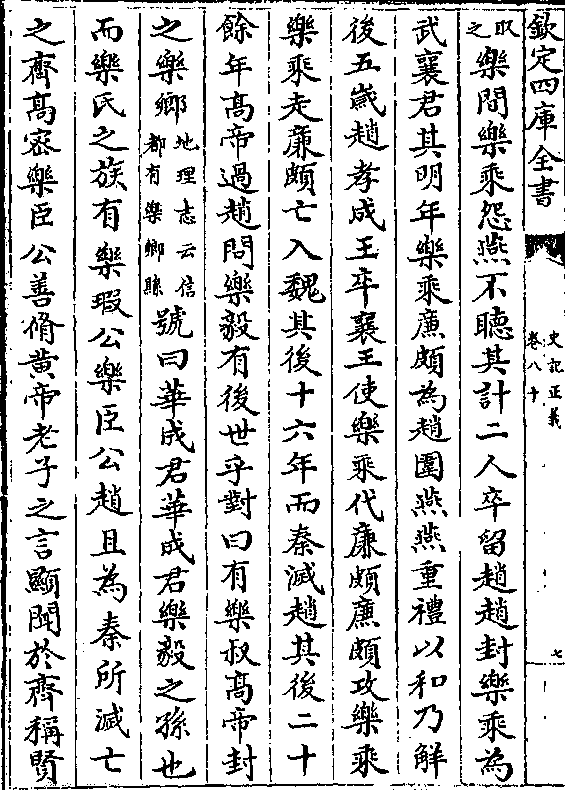 欽定四庫全書
史記正義
卷八十
七
取之
樂間樂乘怨燕不聽其計二人卒留趙趙封樂乘為
武襄君其明年樂乘廉頗為趙圍燕燕重禮以和乃解
後五歲趙孝成王卒襄王使樂乘代廉頗廉頗攻樂乘
樂乘走廉頗亡入魏其後十六年而秦滅趙其後二十
餘年高帝過趙問樂毅有後世乎對曰有樂叔高帝封
之樂鄉地理志云信都有樂鄉縣號曰華成君華成君樂毅之孫也
而樂氏之族有樂瑕公樂臣公趙且為秦所滅亡
之齊高宻樂臣公善脩黄帝老子之言顯聞於齊稱賢